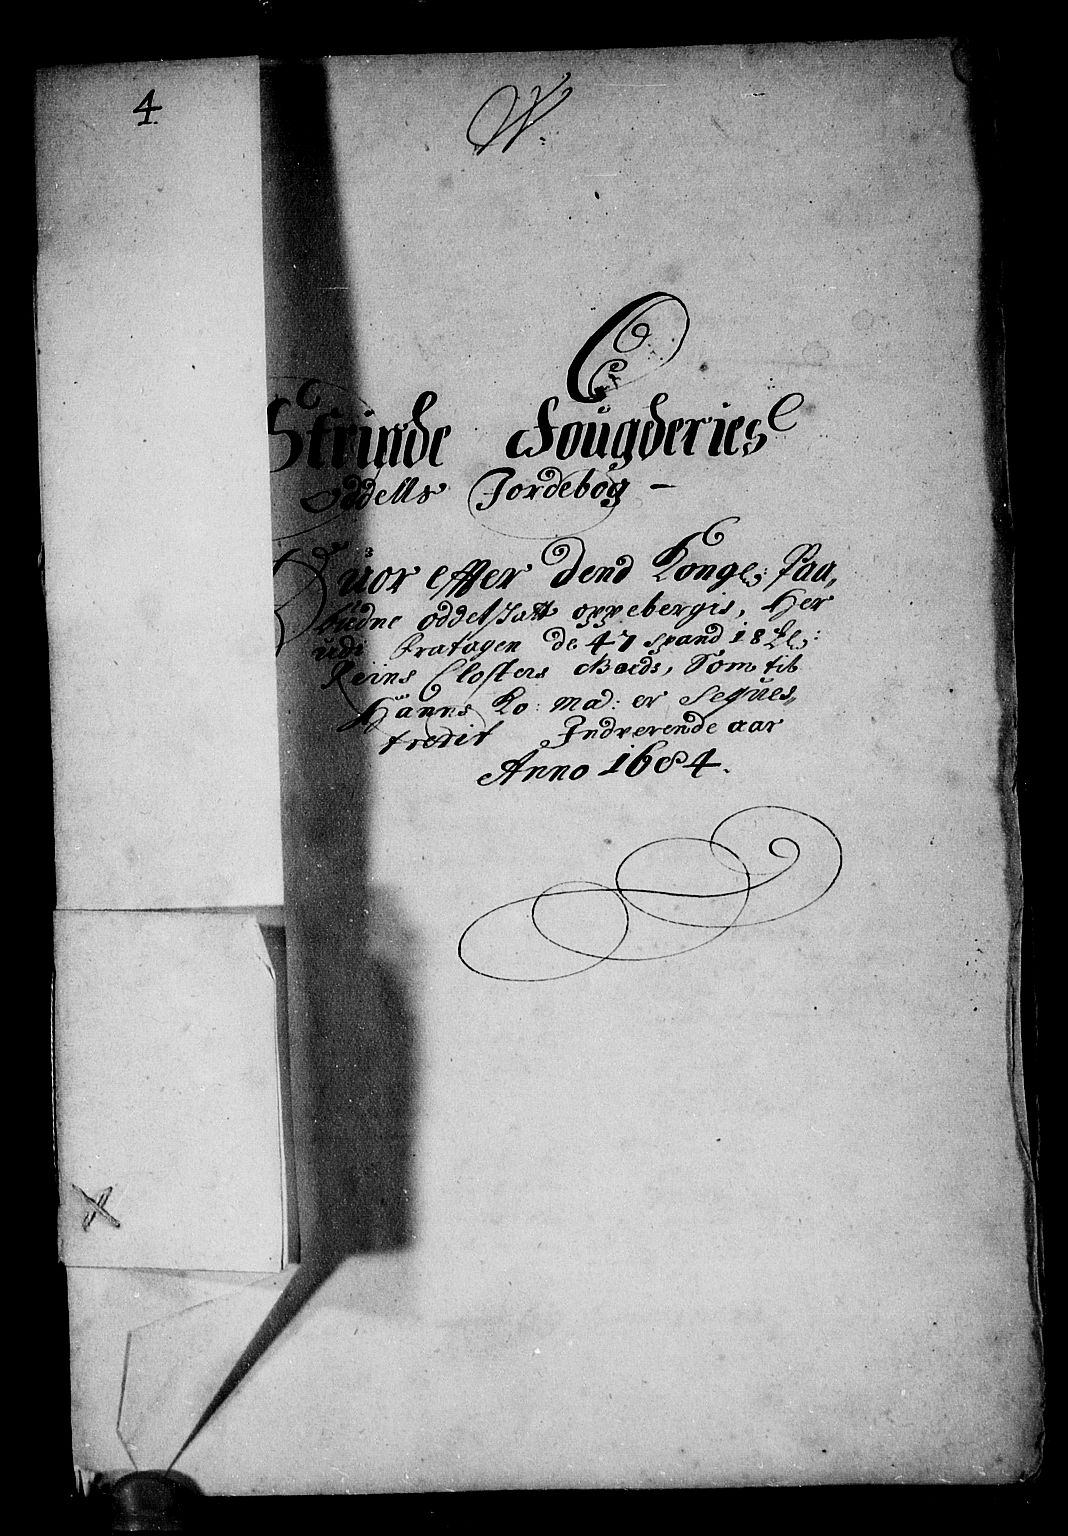 4.
W.
Strinde Fougderies
Oddells Jordebog –
Huor effter dend Konge: Paa,
büdne oddelskatt oppebergis, Her
udi fratagen de 47 spand 18
Reins Closters Goeds, Som till
Hanns Ko: Mad: er Seques,
trerit Indverende aar
Anno 1684.
X